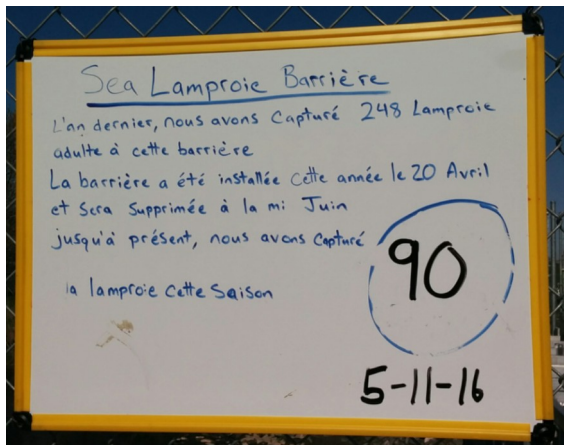 Sea Lamproie Barrière
L'an dernier, nous avons Capturé 248 Lamproie
adulte à cette barrière
La barrière a été installée Cette année le 20 Avril
et Sera Supprimée à la mi Juin
jusqu'à présent, nous avons Capturé
90
la lamproie Cette Saison
5-11-16